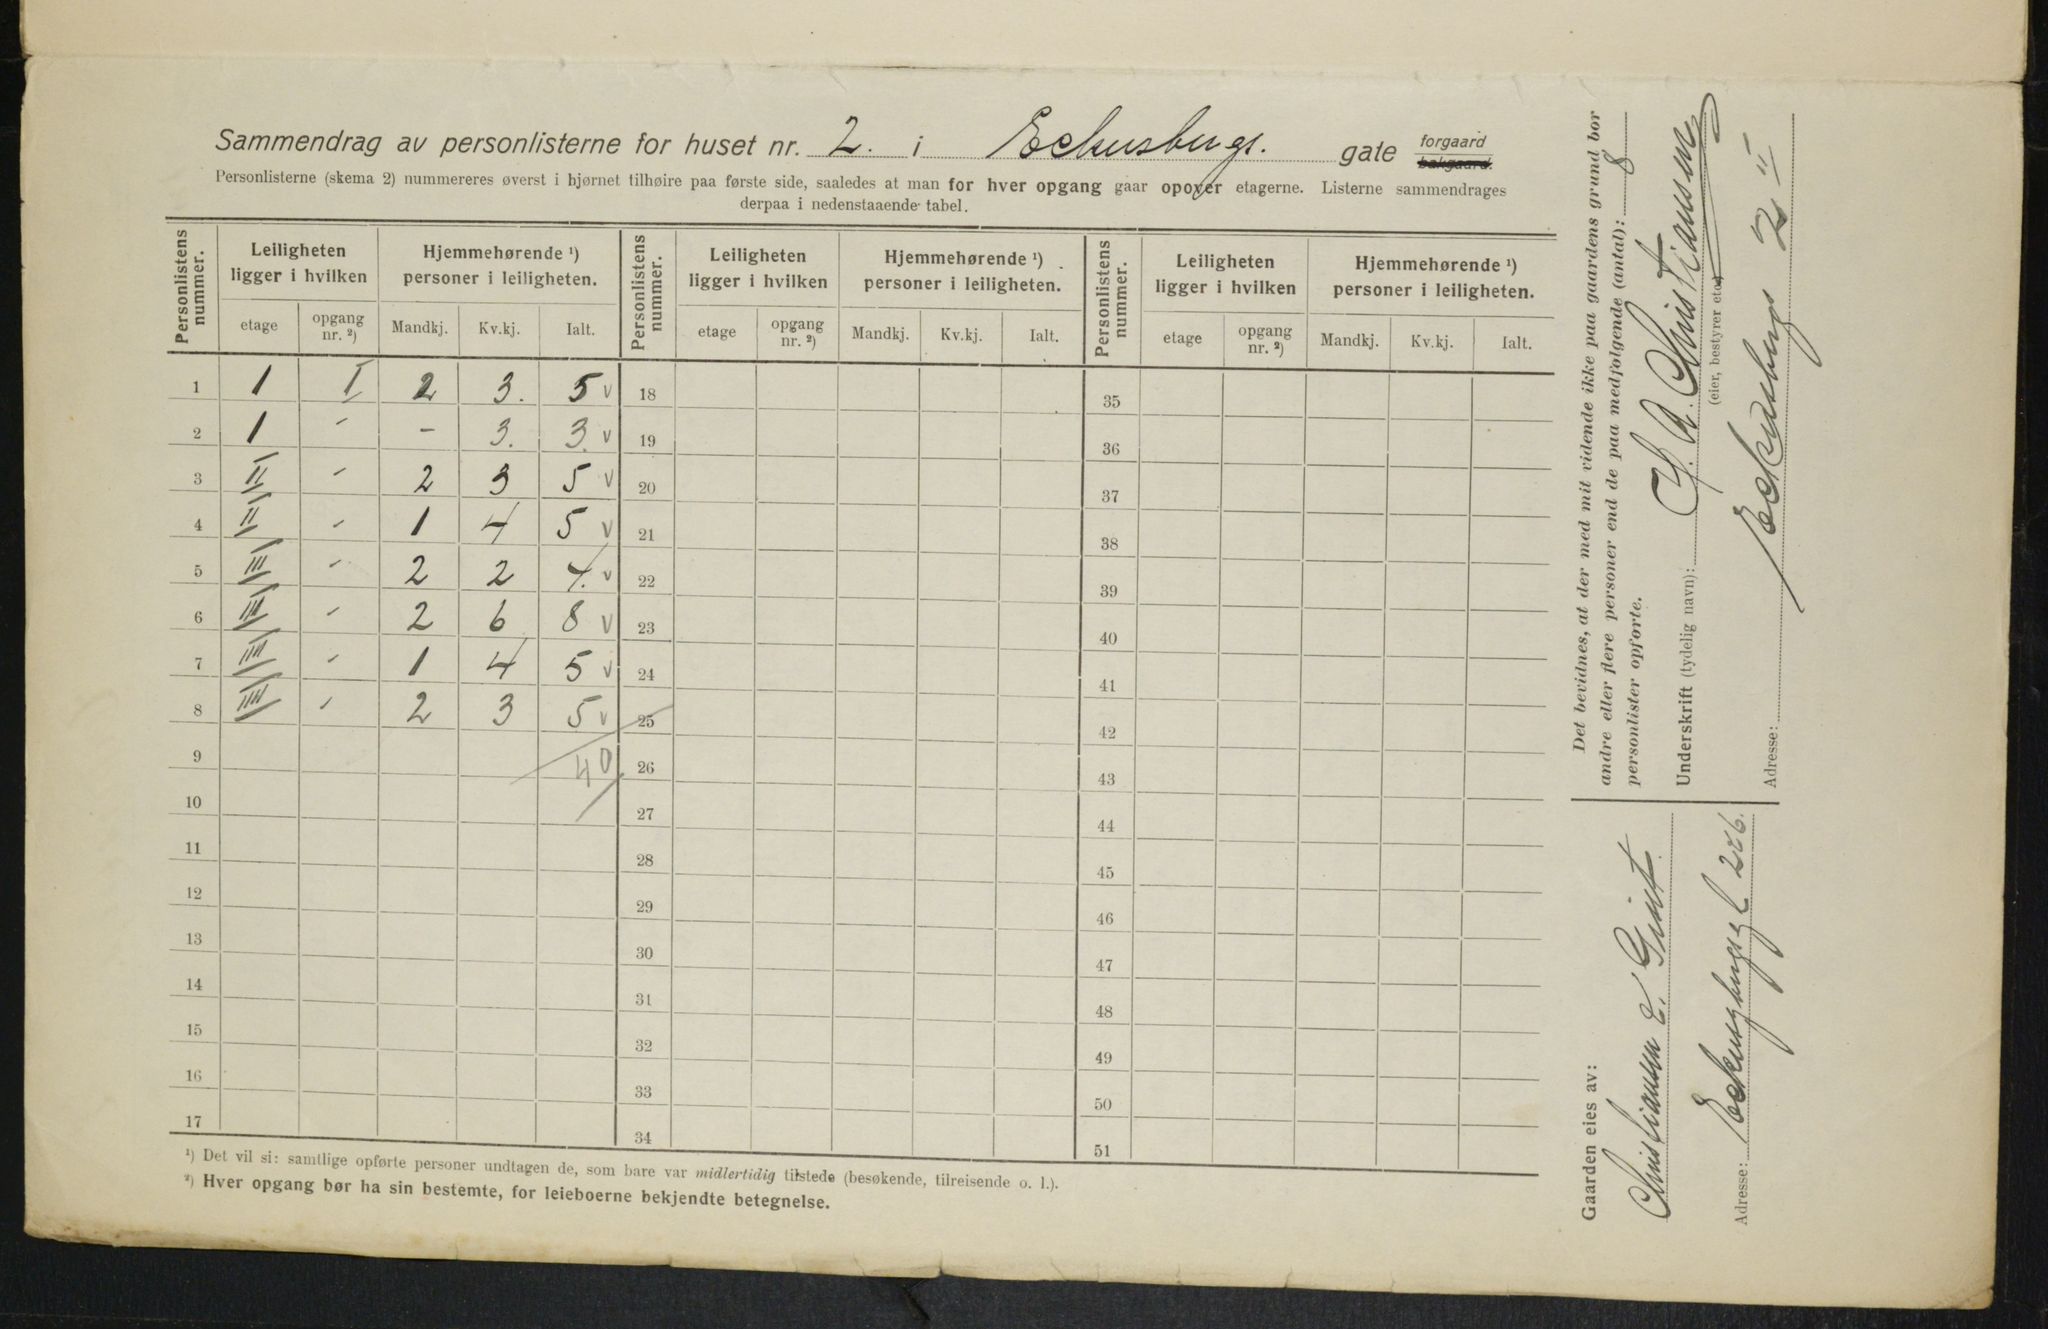 Sammendrag av personlisterne for huset nr. 2. i Eckersbergs. gate forgaard bakgaard.
Personlisterne (skema 2) nummereres øverst i hjørnet tilhøire paa første side, saaledes at man for hver opgang gaar opover etagerne. Listerne sammendrages
derpaa i nedenstaaende tabel.
Personlistens nummer. Leiligheten ligger i hvilken Hjemmehørende ¹) personer i leiligheten. Personlistens nummer. Leiligheten ligger i hvilken Hjemmehørende ¹) personer i leiligheten. Personlistens nummer. Leiligheten ligger i hvilken Hjemmehørende ¹) personer i leiligheten.
etage opgang nr. ²) Mandkj. Kv.kj. Ialt. etage opgang nr. ²) Mandkj. Kv.kj. Ialt. etage opgang nr. ²) Mandkj. Kv.kj. Ialt.
1 1 I 2 3. 5 v 18 35
2 1 " - 3. 3. v 19 36
3 II " 2 3 5 v 20 37
4 II " 1 4 5 v 21 38
5 III " 2 2 4. v 22 39
6 III " 2 6 8 v 23 40
7 IIII " 1 4 5 v 24 41
8 IIII " 2 3 5 v 25 42
9 40 26 43
10 27 44
11 28 45
12 29 46
13 30 47
14 31 48
15 32 49
16 33 50
17 34 51
¹) Det vil si: samtlige opførte personer undtagen de, som bare var midlertidig tilstede (besøkende, tilreisende o. l.).
²) Hver opgang bør ha sin bestemte, for leieboerne bekjendte betegnelse.
Det bevidnes, at der med mit vidende ikke paa gaardens grund bor
andre eller flere personer end de paa medfølgende (antal): 8
personlister opførte.
Underskrift (tydelig navn): Christiansen
(eier, bestyrer etc.)
Adresse: Eckersbergs 2 III
Gaarden eies av:
Christiansen &
Adresse: Eckersbergsg